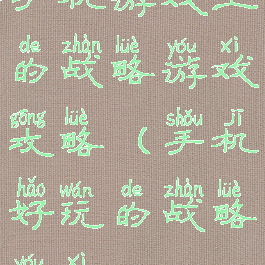 de zhàn lüè yóu xì
的战略游戏
gōng lüè shǒu jī
攻略(手机
hǎo wán de zhàn lüè
好玩的战略
yóu xì